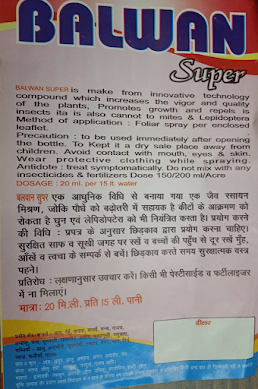 BALWAN
Super
BALWAN SUPER is make from innovative technology
compound which increases the vigor and quality
of the plants, Promotes growth and repels is
insects ita is also cannot to mites & Lepidoptera
Method of application : Foliar spray per enclosed
leaflet.
Precaution : to be used immediately after opening
the bottle, To Kept it a dry sale place away from
children. Avoid contact with mouth, eyes & skin.
Wear protective clothing while spraying.
Anticlote : treat symptomatically. Do not mix with any
insecticides & fertilizers Dose 150/200 ml/Acre
DOSAGE : 20 ml. per 15 lt. water
बलवान सुपर एक आधुनिक विधि से बनाया गया एक जैव रसायन
मिश्रण, जोकि पौधे को बढोत्तरी में सहायक है कीटों के आक्रमण को
रोकता है पुन एवं लेपिडोपटेरा को भी नियंत्रित करता है। प्रयोग करने
की विधि : प्रपत्र के अनुसार छिड़काव द्वारा प्रयोग करना चाहिए।
सुरक्षित साफ व सूखी जगह पर रखें व बच्चों की पहुँच से दूर रखें मुँह,
आँखें व त्वचा के सम्पर्क से बचें। छिड़काव करते समय सुरक्षात्मक वस्त्र
पहने।
प्रतिरोध : लक्षणानुसार उपचार करें। किसी भी पेस्टीसाईड व फर्टीलाइजर
में ना मिलाएं।
मात्रा: 20 मि.ली. प्रति 15 ली. पानी